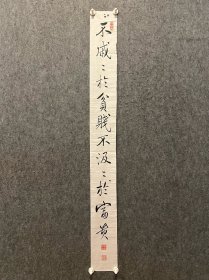 不戚〻於貧賤不汲〻於富貴